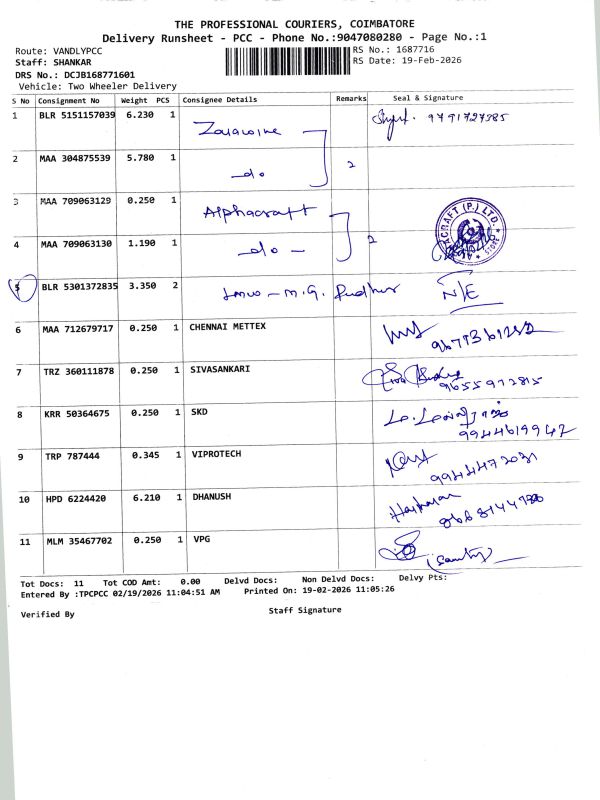 THE PROFESSIONAL COURIERS, COIMBATORE
Delivery Runsheet - PCC - Phone No.:9047080280 - Page No.:1
Route: VANDLYPCC RS No.: 1687716
Staff: SHANKAR RS Date: 19-Feb-2026
DRS No.: DCJB168771601
Vehicle: Two Wheeler Delivery
S No Consignment No Weight PCS Consignee Details Remarks Seal & Signature
1 BLR 5151157039 6.230 1
2 MAA 304875539 5.780 1 -do. 2
3 MAA 709063129 0.250 1 Alphacraft
4 MAA 709063130 1.190 1 -do- 2
5 BLR 5301372835 3.350 2 N/E
6 MAA 712679717 0.250 1 CHENNAI METTEX
7 TRZ 360111878 0.250 1 SIVASANKARI 9655972815
8 KRR 50364675 0.250 1 SKD 9944619942
9 TRP 787444 0.345 1 VIPROTECH 9944472031
10 HPD 6224420 6.210 1 DHANUSH
11 MLM 35467702 0.250 1 VPG
Tot Docs: 11 Tot COD Amt: 0.00 Delvd Docs: Non Delvd Docs: Delvy Pts:
Entered By :TPCPCC 02/19/2026 11:04:51 AM Printed On: 19-02-2026 11:05:26
Verified By Staff Signature